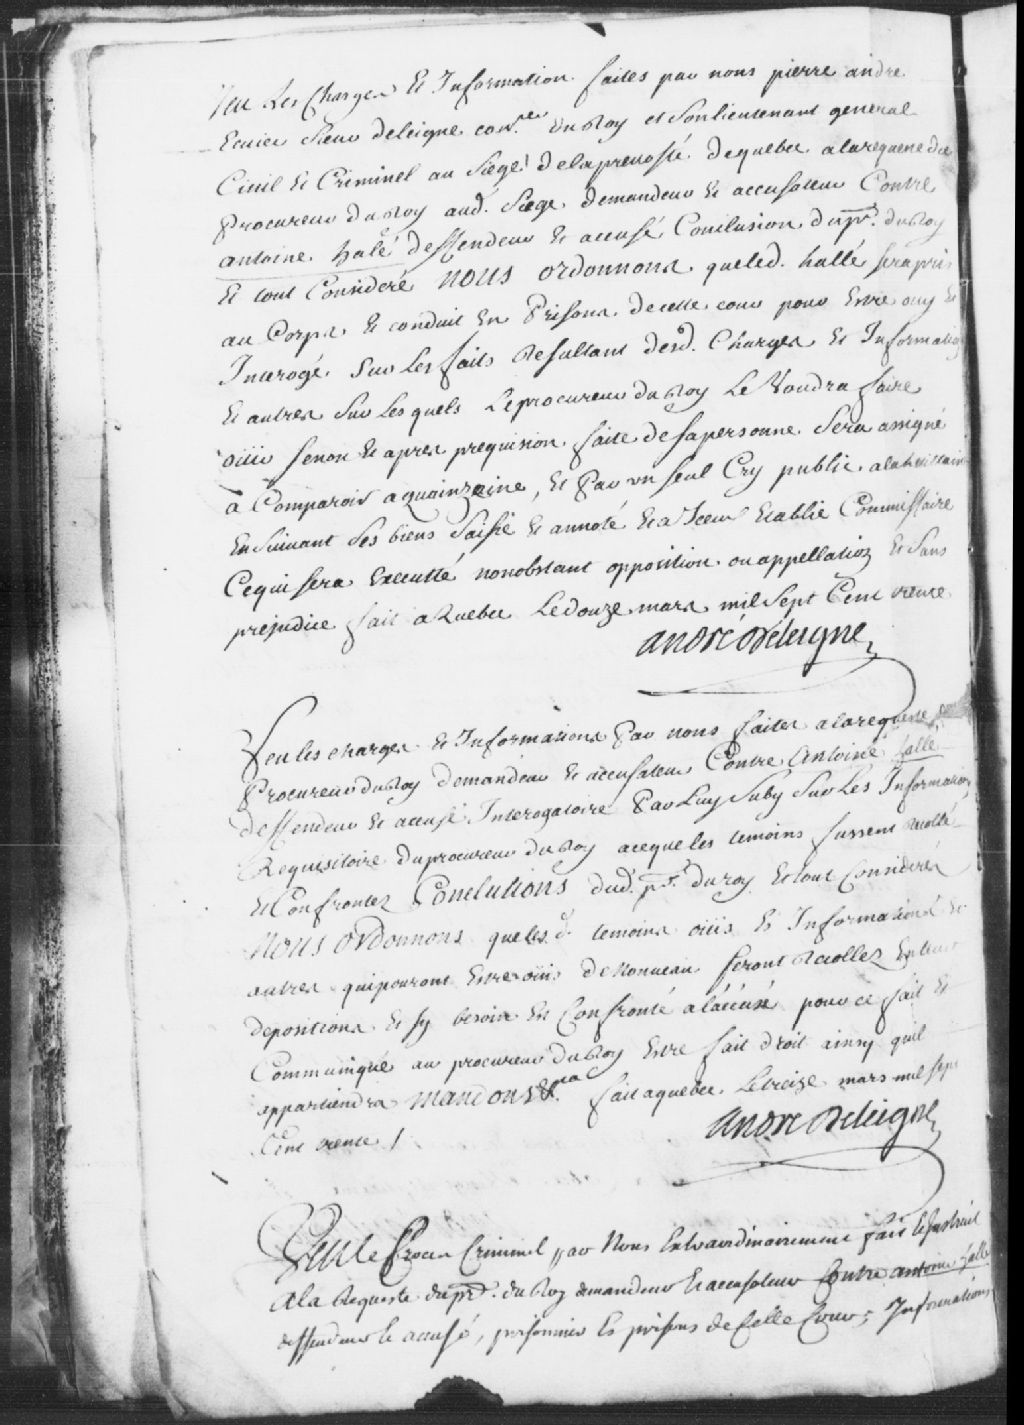 Veu Les Charges Et Information faites par nous pierre andré
Ecuier Sieur deleigne con.er du Roy et Sonlieutenant general
Ciuil Et Criminel au Siege delapreuosté dequebec alarequeste du
Procureur du Roy aud. Siege demandeur Et accusateur Contre
antoine halé deffendeur Et accusé Conclusion dupr. du Roy
Et tout Consideré nous ordonnons queled. hallé serapris
au Corps Et conduit En Prisons decette cour pour Estre ouy Et
Interogé Sur Les faits Resultant desd. Charges Et Information
Et autres Sur Les quels Leprocureur du Roy Le Voudra faire
oüir senon Et apres perquision faite desapersonne Sera assigné
a Comparoir a quainzeine, Et Par vn seul Cry public alahuittaine
Ensuiuant Ses biens Saisie Et annoté Et a Iceux Etablie Commissaire
Cequi sera Executté nonobstant opposition ou appellation Et Sans
prejudice fait a Quebec Ledouze mars mil Sept Cent trente
André Deleigne
Veu les charges Et Informations Par nous faites alarequeste du
Procureur du Roy demandeur Et accusateur Contre Antoine halle
deffendeur Et accusé Interogatoire Par Luy Suby Sur Les Information
Requisitoire duprocureur du Roy aceque les temoins fussent recollé
Et Confrontez Conclutions dud. pr. du roy Et tout Consideré
Nous Ordonnons que les d. temoins oüis Es Informations Et
autres quipouront Estre oüis de Nouueau seront Recollez En leur
depositions Et sy besoin Est Confronté alaccusé pour ce fait Et
Communiqué au procureur du Roy Estre fait droit ainsy quil
appartiendra Mandons &a fait aquebec Letreize mars mil sept
Cent trente /
André Deleigne
Veu Le Proces Criminel par Nous Extraordinairement fait Et Instruit
Ala Requeste dupr. du Roy demandeur Et accusateur Contre antoine halle
deffendeur Et accusé, prisonnier Es prisons de Cette Cour; Informations